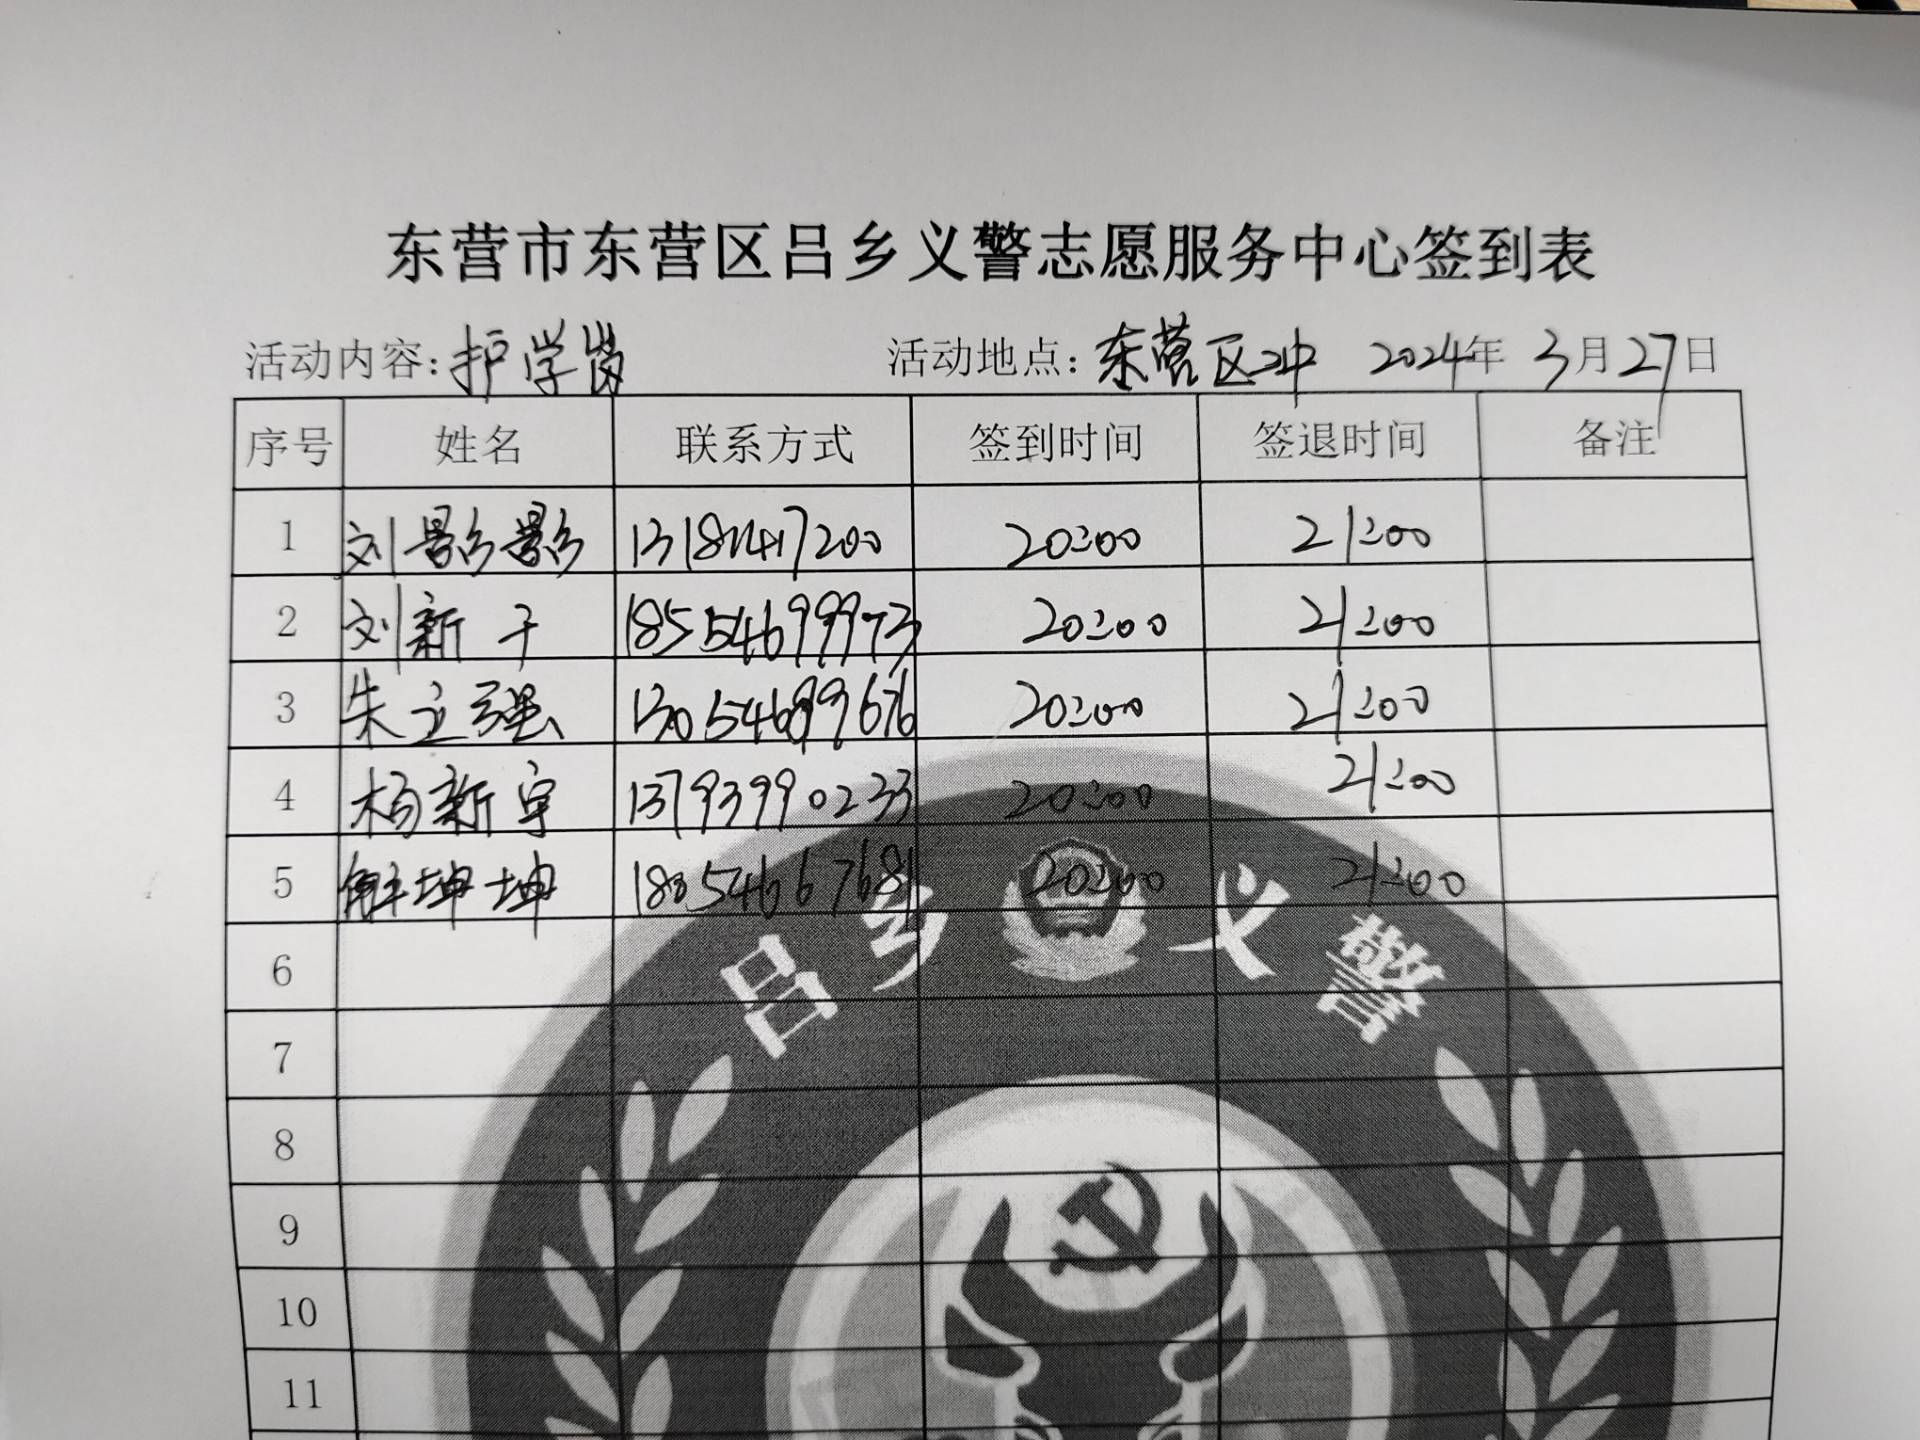 东营市东营区吕乡义警志愿服务中心签到表
活动内容：护学岗 活动地点：东营区二中 2024年 3月27日
序号 姓名 联系方式 签到时间 签退时间 备注
1 刘影影 20:00 21:00
2 刘新干 18554699973 20:00 21:00
3 朱立强 20:00 21:00
4 杨新宇 13793990233 20:00 21:00
5 解坤坤 20:00 21:00
吕乡义警
6
7
8
9
10
11